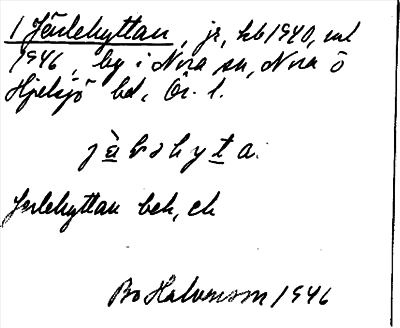 1 Järlehyttan, jr, hb 1940, ml
1946, by i Nora sn, Nora o
Hjulsjö bd, Ör. l.
Jerlehyttan bek, ek
Bo Halvarson 1946